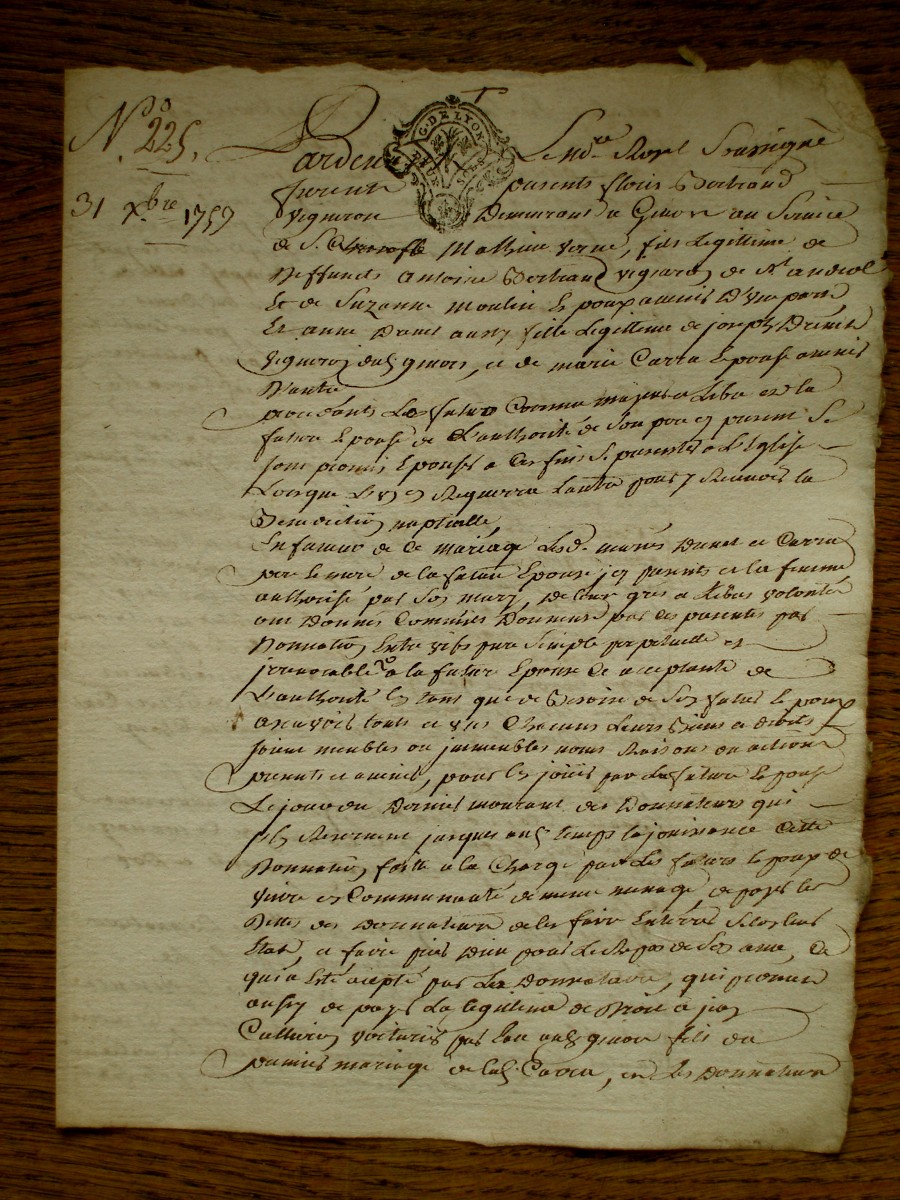 N.° 225.
31 xbre 1757
G. DE LYON
Pardevant Le nd.re Royal Soussigné
furent presents fleuris Bertrand
vigneron Demeurant a Givors au Service
de S. Mathieu verne, fils Legittime de
Deffuncts antoine Bertrand vigneron de St. andeol
Et de Suzanne moulin Epoux avenir D'une part,
Et anne aussy fille Legittime de joseph
vigneron dud. givors, et de marie Carra Epouse avenir
D'autre
procedants Le futur Comme majeur et Libre et la
future Epouse de L'authorité de Son pere cy present Se
Sont promis Epouser a Ces fins Se presenter a L'Eglise
Lorsque L'un en Requerra L'autre pour y Recevoir la
Benediction nuptialle,
En faveur de Ce mariage Lesd. mariés et Carra
pere et mere de la future Epouse icy presents et la femme
authorisé par Son mary, de leur gré et Libre volonté
ont Donnés Comme ils Donnent par Ces presentes par
Donnation Entre vifs pure Simple perpetuelle et
irrevocable a la future Epouse Ce acceptante de
L'authorité En tant que de Besoin de Son futur Epoux
a scavoir touts et uns Chacuns Leurs Biens et droits
meubles ou immeubles noms Raisons ou actions
presents et avenir, pour En jouir par La future Epouse
Le jour du Dernier mourant des Donnateurs qui
s'En Reservent jusques aud. temps la jouissance Cette
Donnation faitte a la Charge par Les futurs Epoux de
vivre en Communauté de meme menage de payer les
Dettes des Donnateurs de les faire Enterrer Selon leur
Etat, et faire prier Dieu pour Le Repos de Son ame, Ce
qui a Eté accepté par La Donnataire, qui promet
aussy de payer La Legittime de Droit a jean
voiturier par Eau aud. givors fils du
premier mariage de lad. Carra, et Les Donnateurs